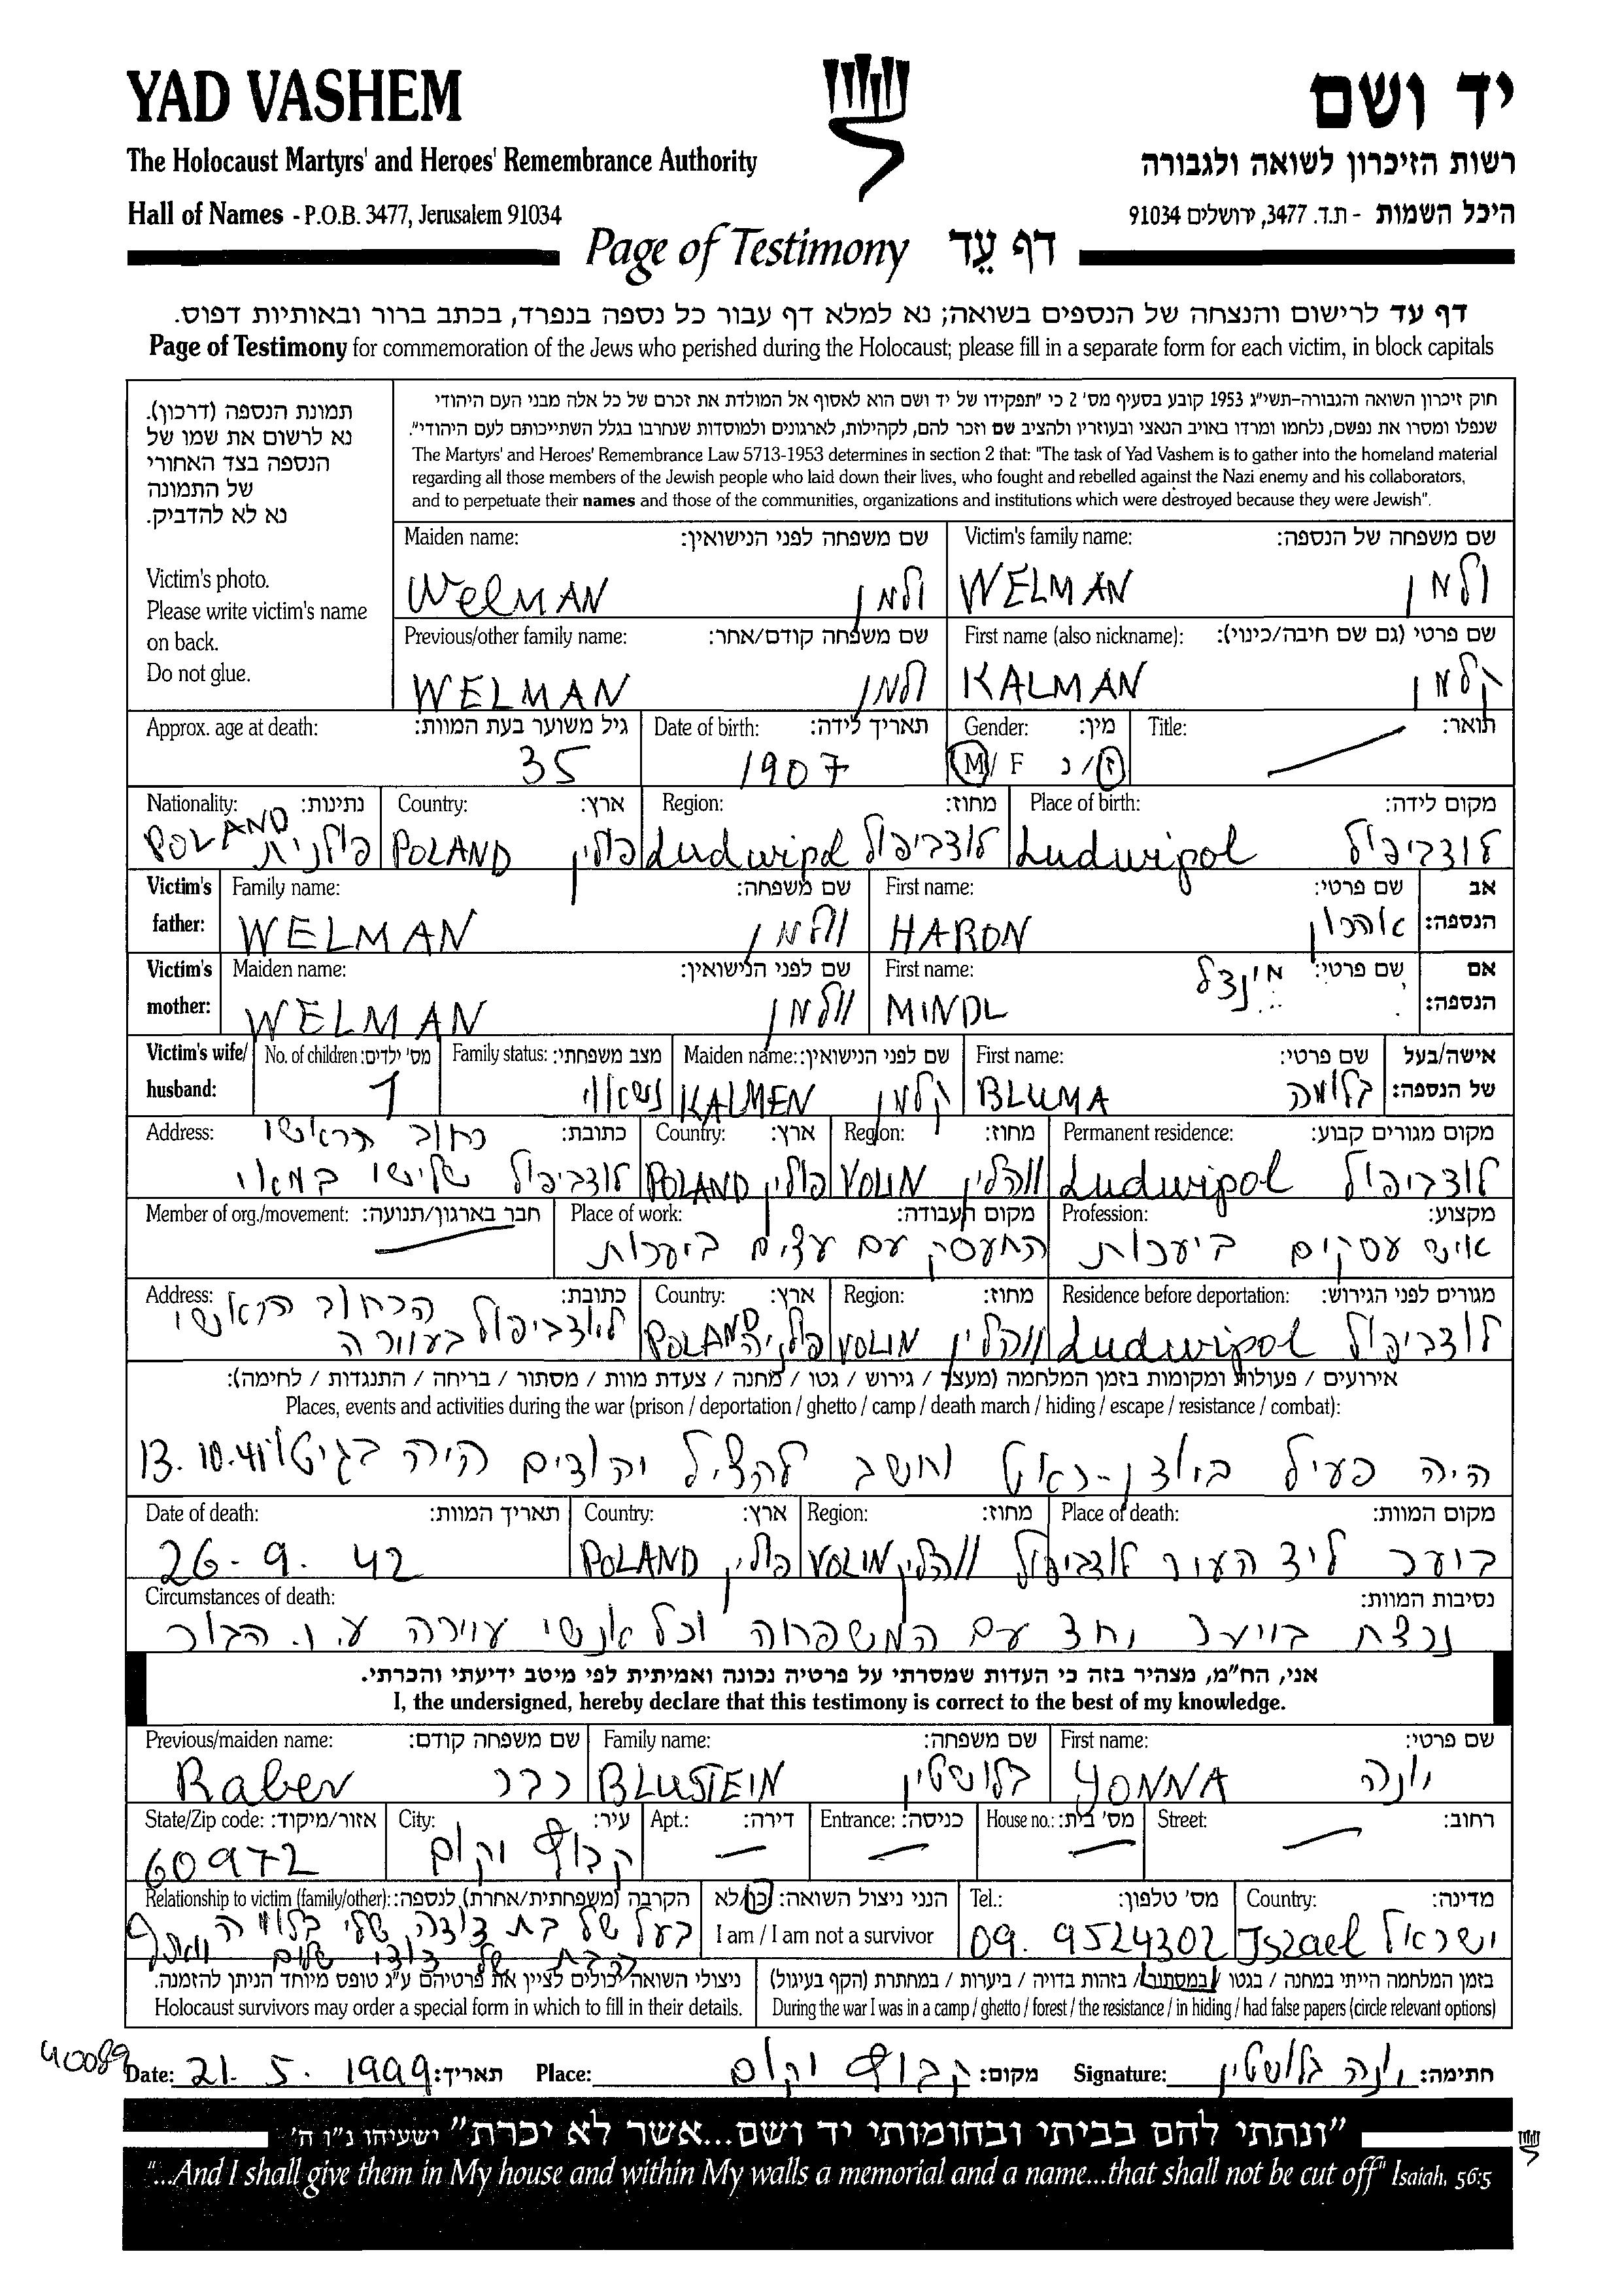 YAD VASHEM
יד ושם
The Holocaust Martyrs' and Heroes' Remembrance Authority
רשות הזיכרון לשואה ולגבורה
Hall of Names - P.O.B. 3477, Jerusalem 91034
היכל השמות - ת.ד. 3477, ירושלים 91034
Page of Testimony דף עֵד
דף עד לרישום והנצחה של הנספים בשואה; נא למלא דף עבור כל נספה בנפרד, בכתב ברור ובאותיות דפוס.
Page of Testimony for commemoration of the Jews who perished during the Holocaust; please fill in a separate form for each victim, in block capitals
תמונת הנספה (דרכון).
נא לרשום את שמו של
הנספה בצד האחורי
של התמונה
נא לא להדביק.
Victim's photo.
Please write victim's name
on back.
Do not glue.
חוק זיכרון השואה והגבורה-תשי"ג 1953 קובע בסעיף מס' 2 כי "תפקידו של יד ושם הוא לאסוף אל המולדת את זכרם של כל אלה מבני העם היהודי
שנפלו ומסרו את נפשם, נלחמו ומרדו באויב הנאצי ובעוזריו ולהציב שם וזכר להם, לקהילות, לארגונים ולמוסדות שנחרבו בגלל השתייכותם לעם היהודי".
The Martyrs' and Heroes' Remembrance Law 5713-1953 determines in section 2 that: "The task of Yad Vashem is to gather into the homeland material
regarding all those members of the Jewish people who laid down their lives, who fought and rebelled against the Nazi enemy and his collaborators,
and to perpetuate their names and those of the communities, organizations and institutions which were destroyed because they were Jewish".
Maiden name: שם משפחה לפני הנישואין: Victim's family name: שם משפחה של הנספה:
WelMAN ולמן WELMAN ולמן
Previous/other family name: שם משפחה קודם/אחר: First name (also nickname): שם פרטי (גם שם חיבה/כינוי):
WELMAN ולמן KALMAN קלמן
Approx. age at death: גיל משוער בעת המוות: Date of birth: תאריך לידה: Gender: מין: Title: תואר:
35 1907 M / F ז / נ
Nationality: נתינות: Country: ארץ: Region: מחוז: Place of birth: מקום לידה:
POLAND פולנית POLAND פולין Ludwipol לודביפול Ludwipol לודביפול
Victim's father: Family name: שם משפחה: First name: שם פרטי: אב הנספה:
WELMAN וולמן HARON אהרון
Victim's mother: Maiden name: שם לפני הנישואין: First name: שם פרטי: אם הנספה:
WELMAN וולמן MINDL מינדל
Victim's wife/ husband: No. of children: מס' ילדים: Family status: מצב משפחתי: Maiden name: שם לפני הנישואין: First name: שם פרטי: אישה/בעל של הנספה:
1 נשאוי KALMEN קלמן BLUMA בלומה
Address: כתובת: Country: ארץ: Region: מחוז: Permanent residence: מקום מגורים קבוע:
רחוב הראשי
לודביפול שלישי במאי POLAND פולין VOLIN ווהלין Ludwipol לודביפול
Member of org./movement: חבר בארגון/תנועה: Place of work: מקום העבודה: Profession: מקצוע:
התעסק עם עצים ביערות איש עסקים ביערות
Address: כתובת: Country: ארץ: Region: מחוז: Residence before deportation: מגורים לפני הגירוש:
הרחוב הראשי
לודביפול בעיירה POLAND פולניה VOLIN ווהלין Ludwipol לודביפול
אירועים / פעולות ומקומות בזמן המלחמה (מעצר / גירוש / גטו / מחנה / צעדת מוות / מסתור / בריחה / התנגדות / לחימה):
Places, events and activities during the war (prison / deportation / ghetto / camp / death march / hiding / escape / resistance / combat):
היה פעיל ביודן-ראט וחשב להציל יהודים היה בגיטו 13.10.41
Date of death: תאריך המוות: Country: ארץ: Region: מחוז: Place of death: מקום המוות:
26-9. 42 POLAND פולין VOLIN ווהלין ביער ליד העיר לודביפול
Circumstances of death: נסיבות המוות:
נרצח ביער יחד עם המשפחה וכל אנשי עיירה
אני, הח"מ, מצהיר בזה כי העדות שמסרתי על פרטיה נכונה ואמיתית לפי מיטב ידיעתי והכרתי.
I, the undersigned, hereby declare that this testimony is correct to the best of my knowledge.
Previous/maiden name: שם משפחה קודם: Family name: שם משפחה: First name: שם פרטי:
Raber רבר BLUSTEIN בלושטיין YONNA יונה
State/Zip code: אזור/מיקוד: City: עיר: Apt.: דירה: Entrance: כניסה: House no.: מס' בית: Street: רחוב:
60972 קבוץ יקום
Relationship to victim (family/other): הקרבה (משפחתית/אחרת) לנספה: הנני ניצול השואה: כן/לא Tel.: מס' טלפון: Country: מדינה:
בעל של בת דודה שלי בלומה
הבת של דודי שלום
I am / I am not a survivor 09. 9524302 Iszael ישראל
ניצולי השואה יכולים לציין את פרטיהם ע"ג טופס מיוחד הניתן להזמנה.
Holocaust survivors may order a special form in which to fill in their details.
בזמן המלחמה הייתי במחנה / בגטו / במסתור / בזהות בדויה / ביערות / במחתרת (הקף בעיגול)
During the war I was in a camp / ghetto / forest / the resistance / in hiding / had false papers (circle relevant options)
40089
Date: 21. 5. 1999 תאריך: Place: קבוץ יקום מקום: Signature: יונה בלושטיין חתימה:
"ונתתי להם בביתי ובחומותי יד ושם...אשר לא יכרת" ישעיהו נ"ו ה'
"...And I shall give them in My house and within My walls a memorial and a name...that shall not be cut off" Isaiah, 56:5